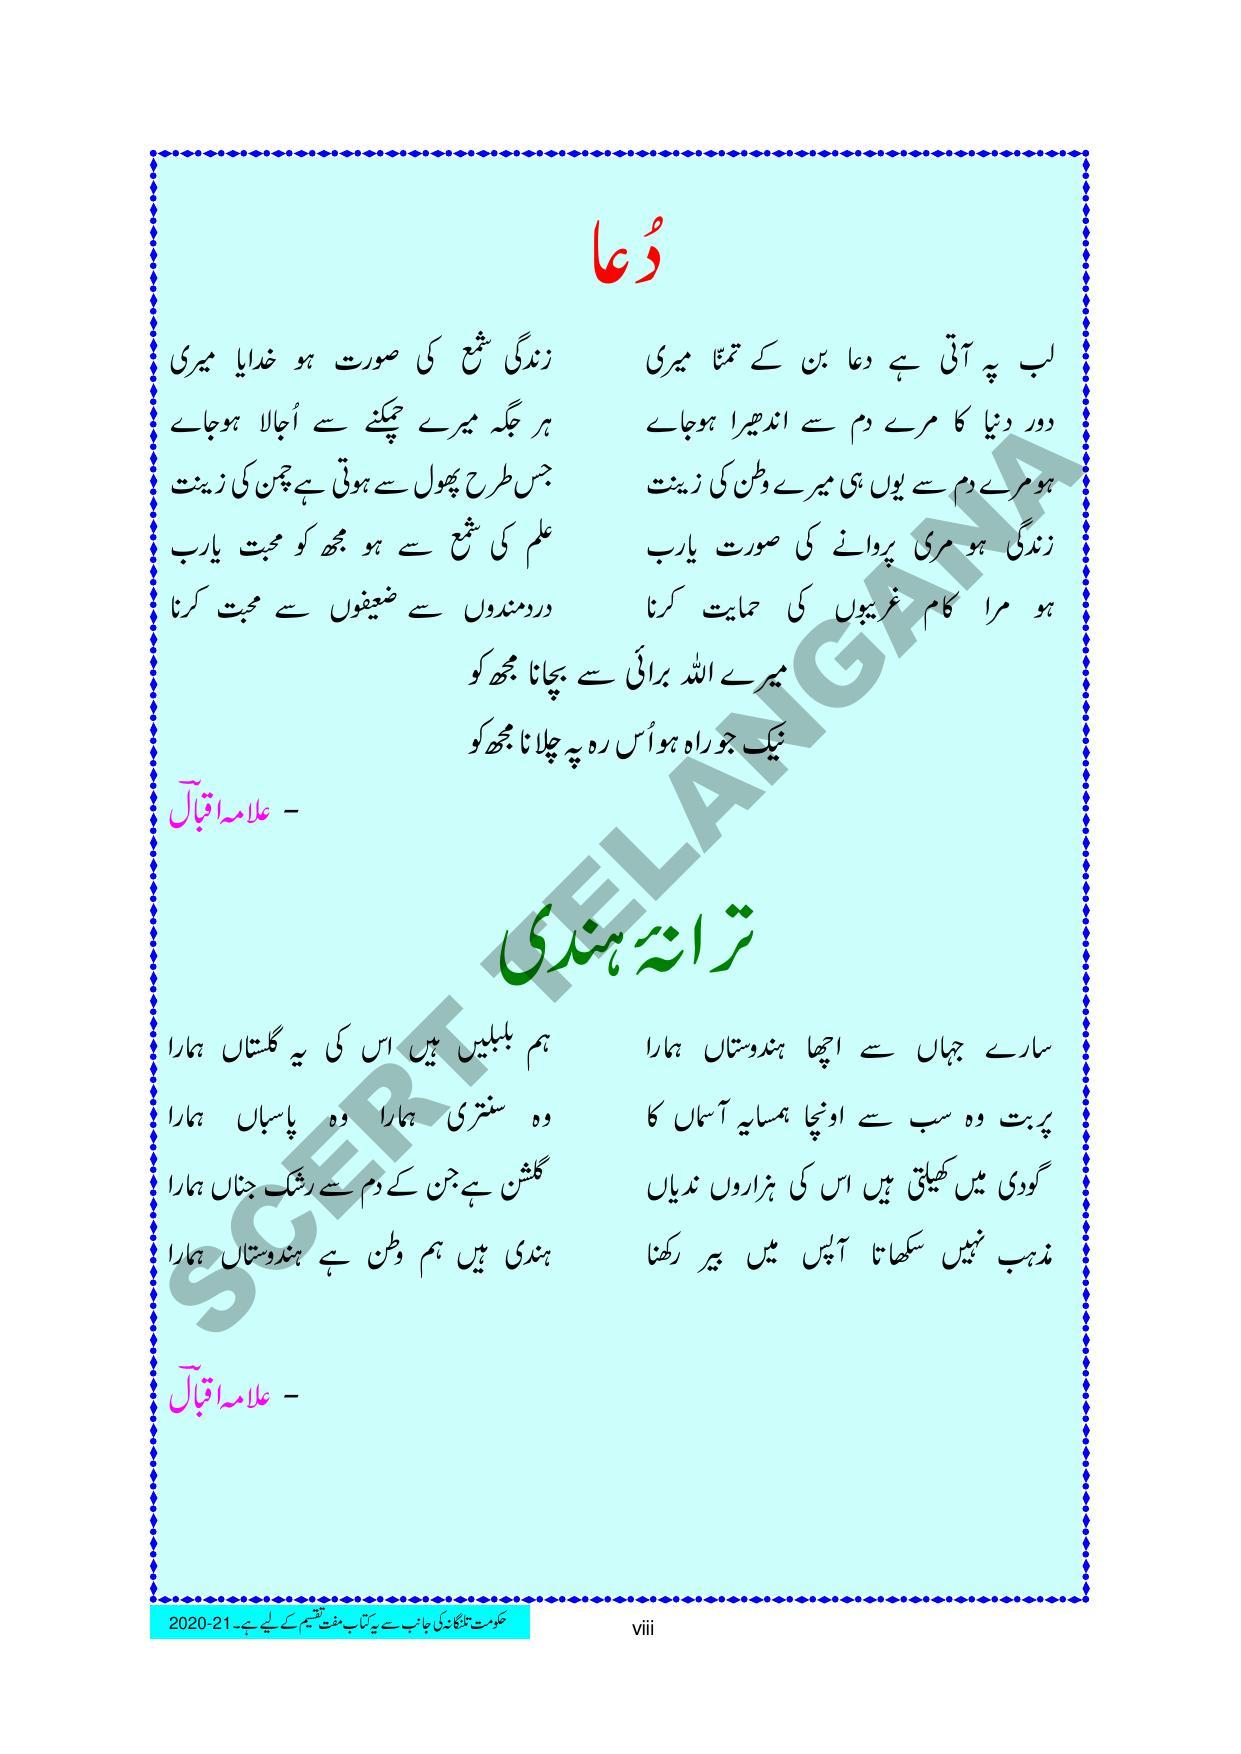 دُعا
لب پہ آتی ہے دعا بن کے تمنّا میری زندگی شمع کی صورت ہو خدایا میری
دور دنیا کا مرے دم سے اندھیرا ہوجاے ہر جگہ میرے چمکنے سے اُجالا ہوجاے
ہو مرے دم سے یوں ہی میرے وطن کی زینت جس طرح پھول سے ہوتی ہے چمن کی زینت
زندگی ہو مری پروانے کی صورت یارب علم کی شمع سے ہو مجھ کو محبت یارب
ہو مرا کام غریبوں کی حمایت کرنا دردمندوں سے ضعیفوں سے محبت کرنا
میرے اللہ برائی سے بچانا مجھ کو
نیک جو راہ ہو اُس رہ پہ چلانا مجھ کو
- علامہ اقبالؔ
ترانۂ ہندی
سارے جہاں سے اچھا ہندوستاں ہمارا ہم بلبلیں ہیں اس کی یہ گلستاں ہمارا
پربت وہ سب سے اونچا ہمسایہ آسماں کا وہ سنتری ہمارا وہ پاسباں ہمارا
گودی میں کھیلتی ہیں اس کی ہزاروں ندیاں گلشن ہے جن کے دم سے رشک جناں ہمارا
مذہب نہیں سکھاتا آپس میں بیر رکھنا ہندی ہیں ہم وطن ہے ہندوستاں ہمارا
- علامہ اقبالؔ
SCERT TELANGANA
حکومت تلنگانہ کی جانب سے یہ کتاب مفت تقسیم کے لیے ہے۔ 2020-21
viii